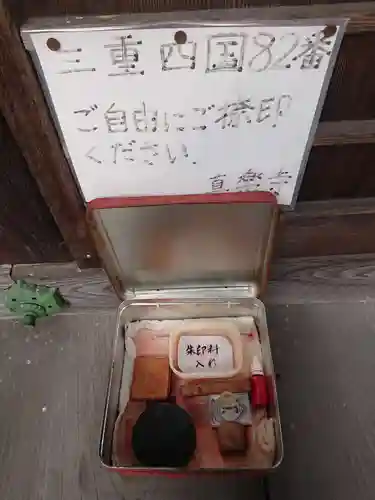 三重四国82番
ご自由にご捺印
ください.
真樂寺
朱印料
入れ